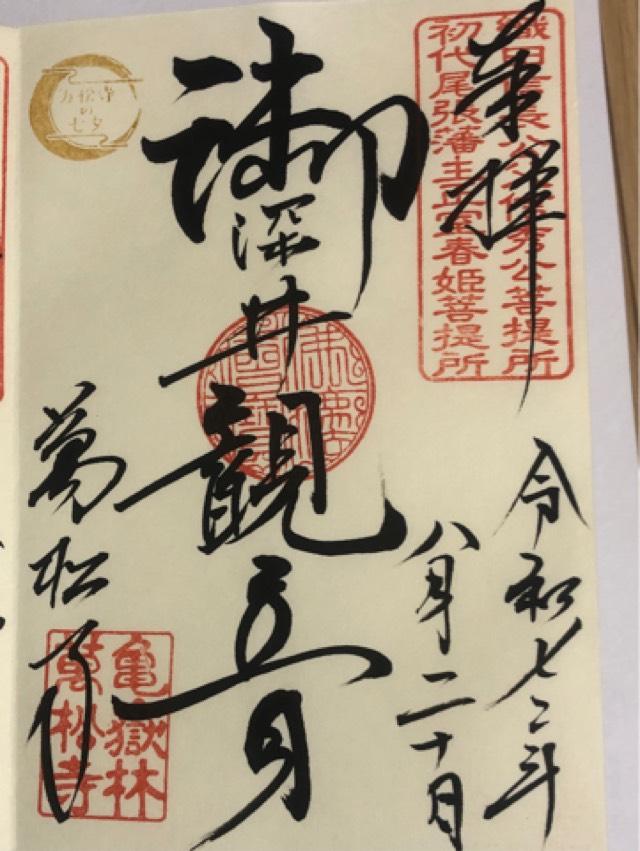 奉拝
織田信長公父信秀公菩提所
初代尾張藩主正室春姫菩提所
令和七年
八月二十日
御深井観音
万松寺
の
七夕
萬松寺
亀嶽林
萬松寺